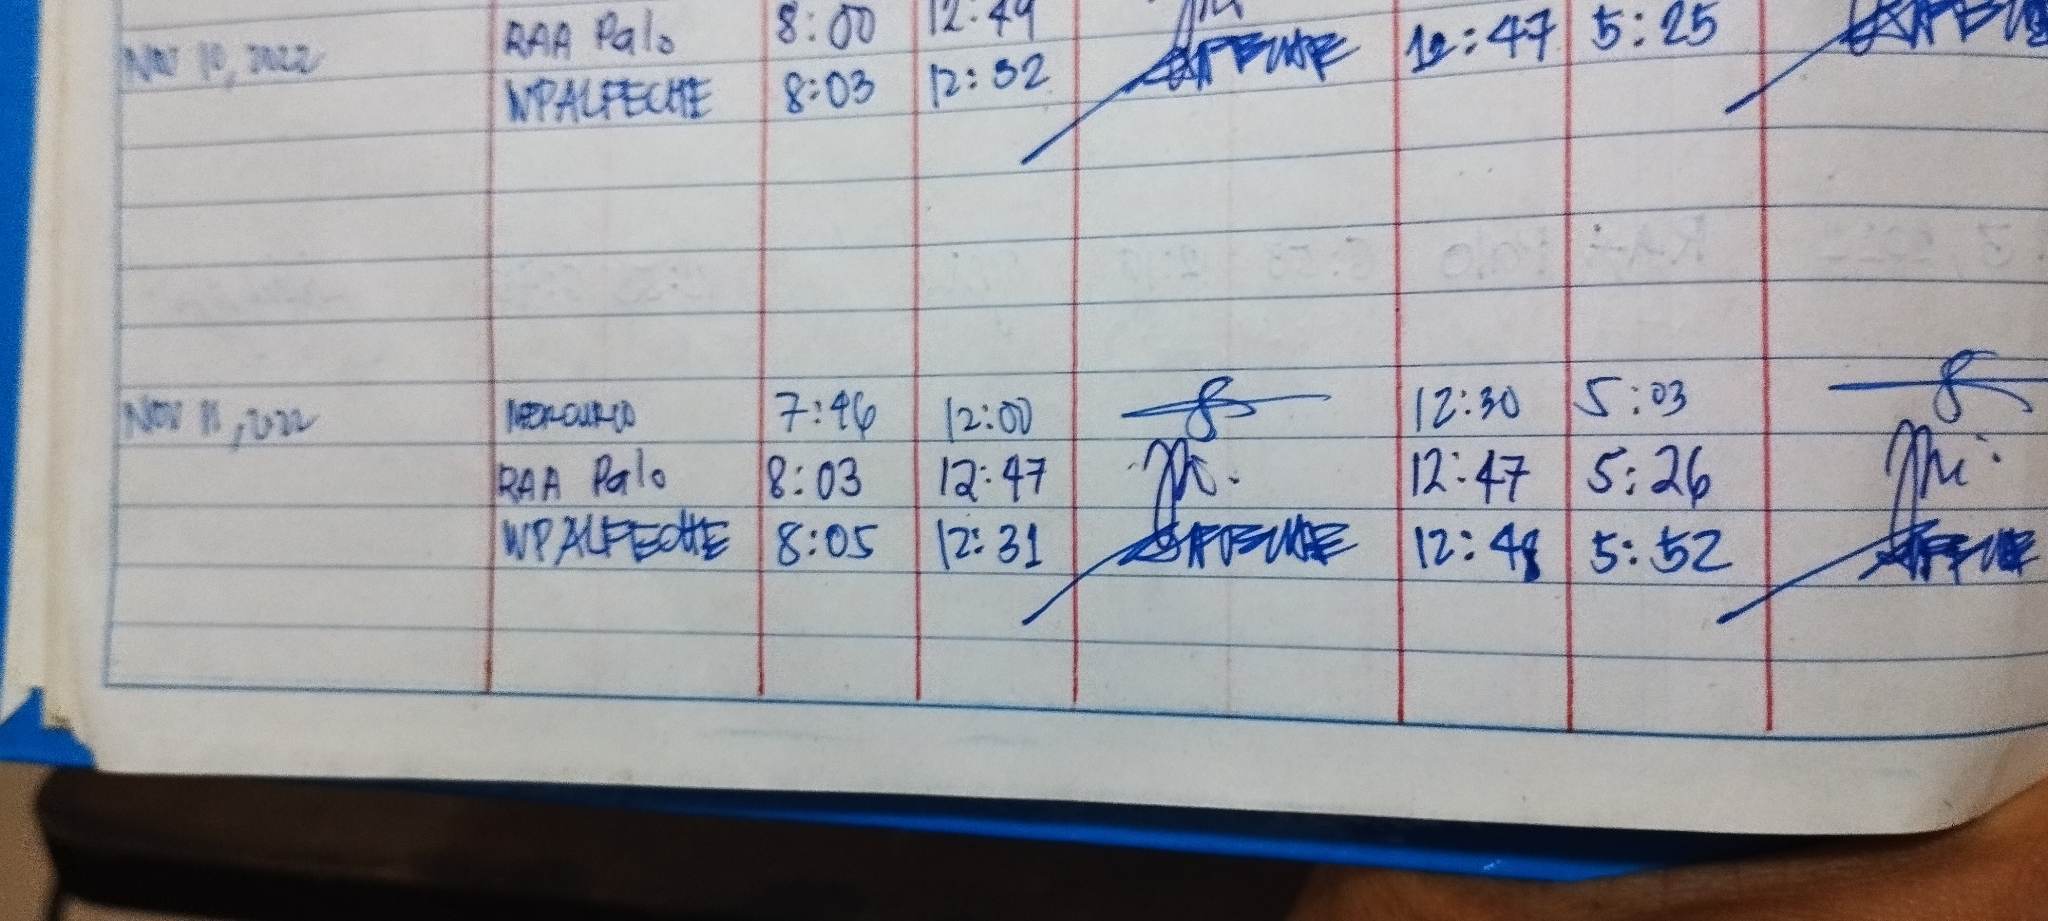 RAA Palo 8:00 12:49
Nov 10, 2022 WPALFECHE 8:03 12:32 12:47 5:25
Nov 11, 2022 MERCURIO 7:46 12:00 12:30 5:03
RAA Palo 8:03 12:47 12:47 5:26
WPALFECHE 8:05 12:31 12:48 5:52